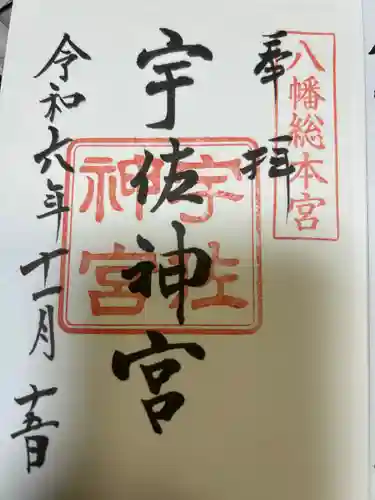 八幡総本宮
奉拝
宇佐神宮
宇佐神宮
令和六年十一月十五日